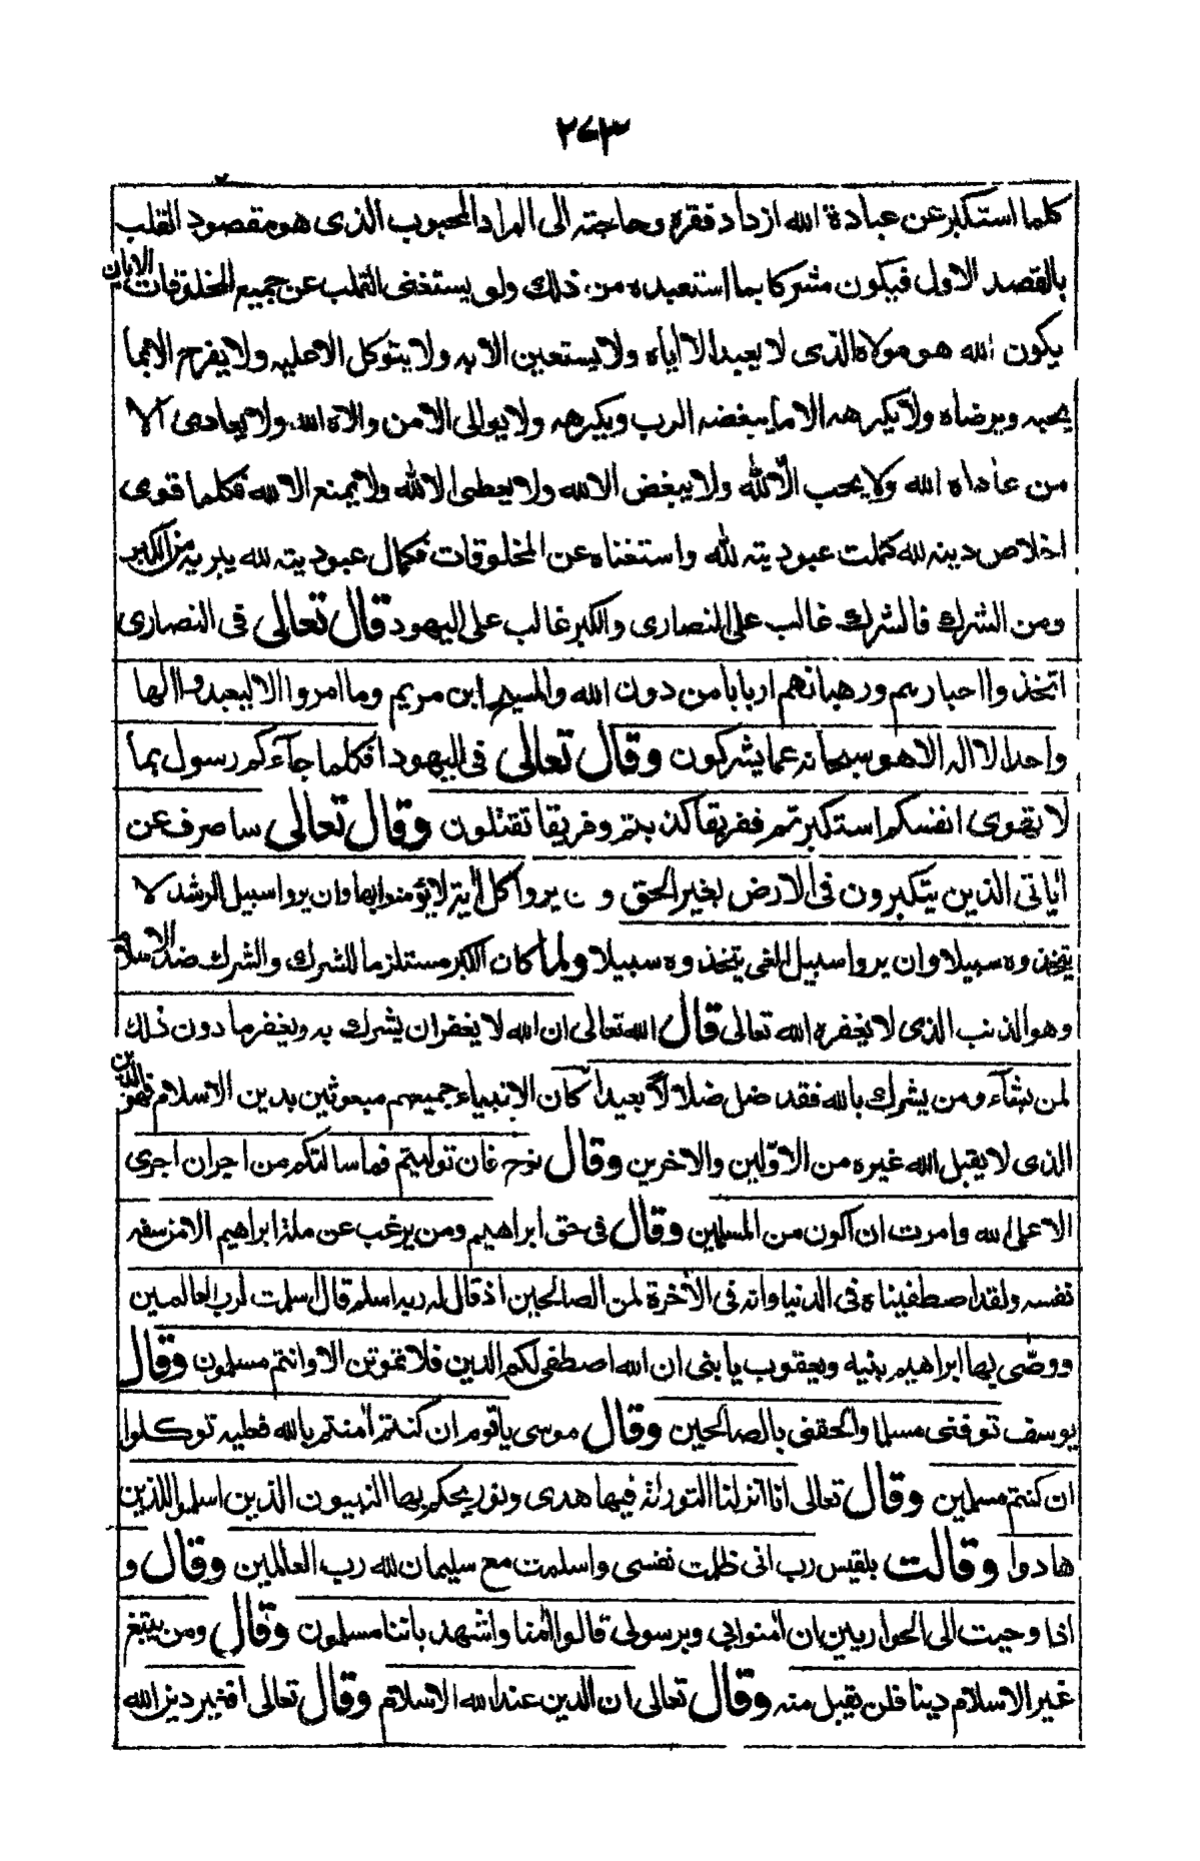 ٢٧٣
كلما استكبر عن عبادة الله ازداد فقره وحاجته الى المراد المحبوب الذى هو مقصود القلب
بالقصد الاول فيكون مشركا بما استعبده من ذلك ولو يستغنى القلب عن جميع المخلوقات الابان
يكون الله هو مولاه الذى لا يعبد الا اياه ولا يستعين الا به ولا يتوكل الا عليه ولا يفرح الا بما
يحبه ويرضاه ولا يكره الا ما يبغضه الرب ويكرهه ولا يوالى الا من والاه الله ولا يعادى الا
من عاداه الله ولا يحب الا لله ولا يبغض الا لله ولا يعطى الا لله ولا يمنع الا لله فكلما قوى
اخلاص دينه لله كملت عبوديته لله واستغناه عن المخلوقات فكمال عبوديته لله يبريه من الكبر
ومن الشرك فالشرك غالب على النصارى والكبر غالب على اليهود قال تعالى فى النصارى
اتخذوا احبارهم ورهبانهم اربابا من دون الله والمسيح ابن مريم وما امروا الا ليعبدوا الها
واحدا لا اله الا هو سبحانه عما يشركون وقال تعالى فى اليهود افكلما جآءكم رسول بما
لا تهوى انفسكم استكبرتم ففريقا كذبتم وفريقا تقتلون وقال تعالى ساصرف عن
اياتى الذين يتكبرون فى الارض بغير الحق و ن يروا كل اية لا يؤمنوا بها وان يروا سبيل الرشد لا
يتخذوه سبيلا وان يروا سبيل الغى يتخذوه سبيلا ولما كان الكبر مستلزما للشرك والشرك ضد الاسلام
وهو الذنب الذى لا يغفره الله تعالى قال الله تعالى ان الله لا يغفر ان يشرك به ويغفر ما دون ذلك
لمن يشآء ومن يشرك بالله فقد ضل ضلالا بعيدا كان الانبياء جميعهم مبعوثين بدين الاسلام فهو الدين
الذى لا يقبل الله غيره من الاولين والاخرين وقال نوح فان توليتم فما سالتكم من اجر ان اجرى
الا على الله وامرت ان اكون من المسلمين وقال فى حق ابراهيم ومن يرغب عن ملة ابراهيم الا من سفه
نفسه ولقد اصطفيناه فى الدنيا وانه فى الاخرة لمن الصالحين اذ قال له ربه اسلم قال اسلمت لرب العالمين
ووصّى بها ابراهيم بنيه ويعقوب يا بنى ان الله اصطفى لكم الدين فلا تموتن الا وانتم مسلمون وقال
يوسف توفنى مسلما والحقنى بالصالحين وقال موسى يا قوم ان كنتم امنتم بالله فعليه توكلوا
ان كنتم مسلمين وقال تعالى انا انزلنا التوراة فيها هدى ونور يحكم بها النبيون الذين اسلموا للذين
هادوا وقالت بلقيس رب انى ظلمت نفسى واسلمت مع سليمان لله رب العالمين وقال و
اذا وحيت الى الحواريين بان امنوا بى وبرسولى قالوا امنا واشهد باننا مسلمون وقال ومن يبتغ
غير الاسلام دينا فلن يقبل منه وقال تعالى ان الدين عند الله الاسلام وقال تعالى افغير دين الله